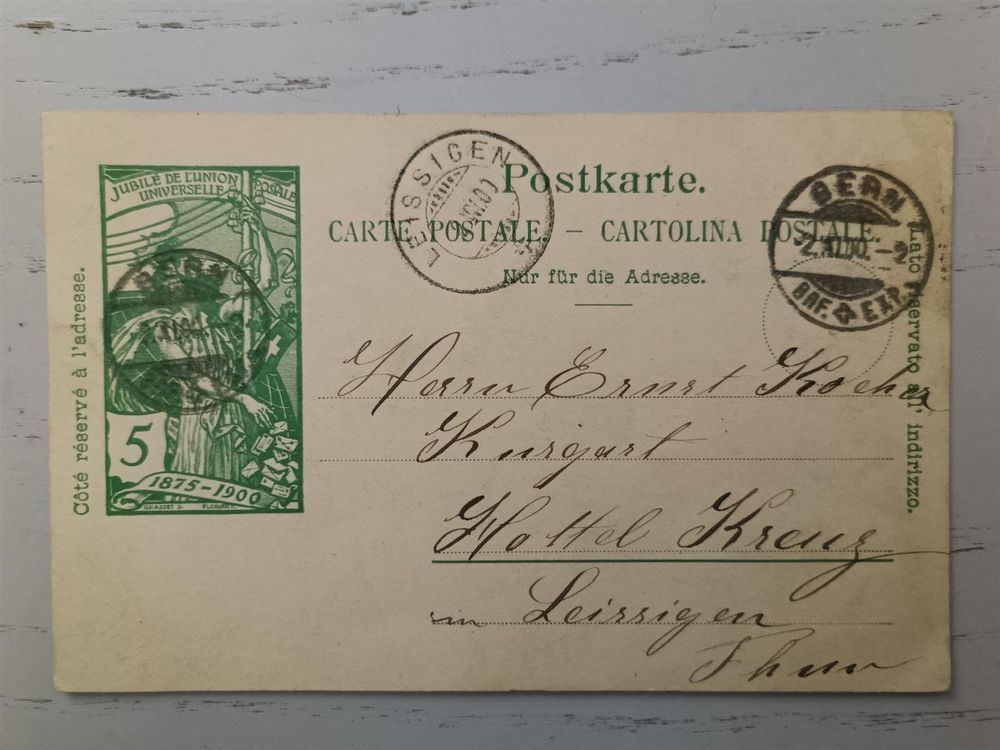 JUBILÉ DE L'UNION POSTALE
UNIVERSELLE
5
1875-1900
GRASSET D.
Côté réservé à l'adresse.
LEISSIGEN
Postkarte.
CARTE POSTALE. — CARTOLINA POSTALE.
Nur für die Adresse.
BERN
BRF. EXP.
BERN
Lato riservato all' indirizzo.
Herrn Ernst Kocher
Kurgart
Hottel Kreuz
in Leissigen
Thun